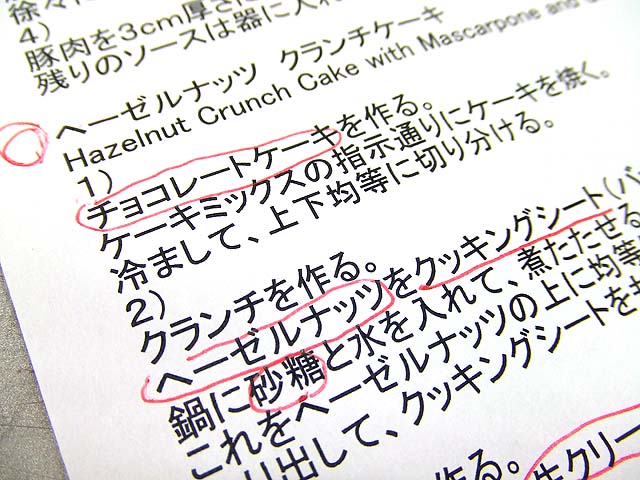 徐々に
4)
豚肉を3cm厚さに
残りのソースは器に入れ
ヘーゼルナッツ クランチケーキ
Hazelnut Crunch Cake with Mascarpone and
1)
チョコレートケーキを作る。
ケーキミックスの指示通りにケーキを焼く。
冷まして、上下均等に切り分ける。
2)
クランチを作る。
ヘーゼルナッツをクッキングシート(バ
鍋に砂糖と水を入れて、煮たたせる
これをヘーゼルナッツの上に均等に
り出して、クッキングシートを
作る。 生クリー